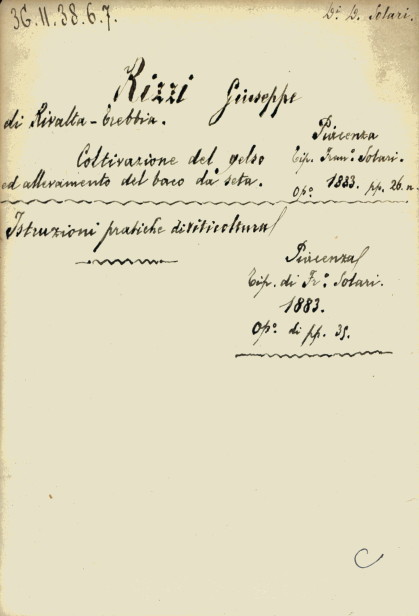 36.11.38.6.7.
Dº. D. Solari.
Rizzi Giuseppe
di Rivalta-Trebbia.
Coltivazione del gelso
ed allevamento del baco da seta.
Piacenza
Tip. Franº. Solari.
Opº. 1883. pp. 26.
Istruzioni pratiche di viticoltura
Piacenza
Tip. di Frº. Solari.
1883.
Opº. di pp. 35.
C